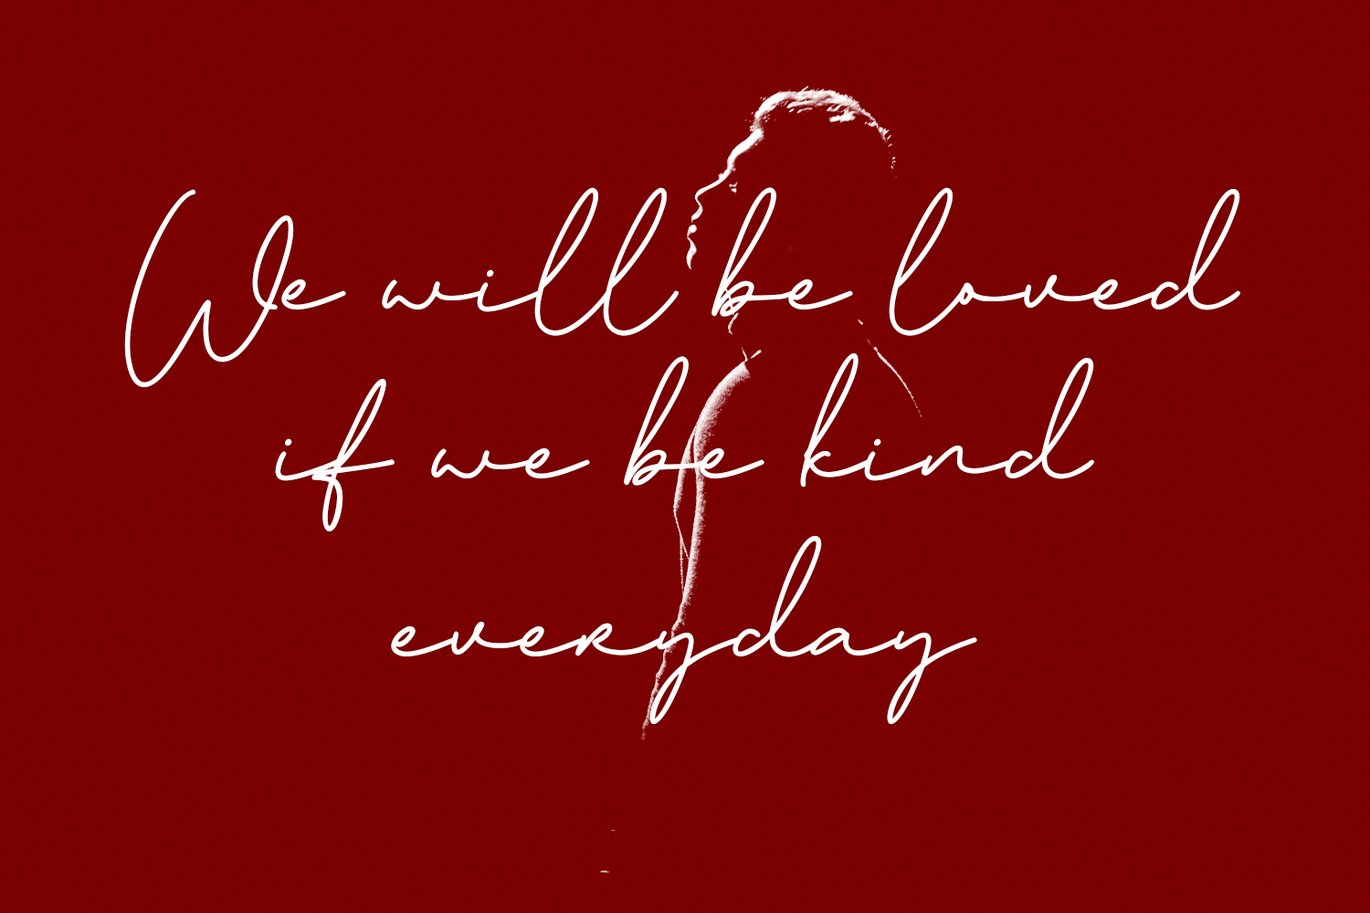 We will be loved
if we be kind
everyday